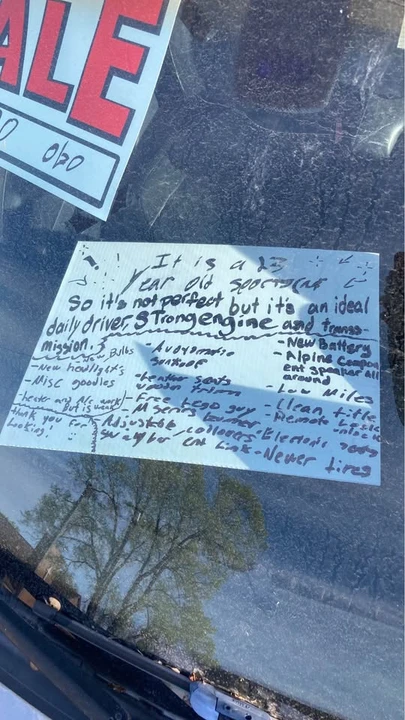 ALE
0 obo
It is a 23
Year old sportscar
So it's not perfect but it's an ideal
daily driver, Strong engine and trans-
mission.
- New Bulbs
- New headlights
- Misc goodies
- heater and A/c work
but is weak
Thank you for
Looking!
Sunroof
- Leather Seats
- Free Lego guy
- M Series
- Adjustable coilovers
- New Battery
- Alpine Compon
ent speaker all
around
- Low Miles
- Clean title
- Remote Lock
unlock
Link
- Newer tires